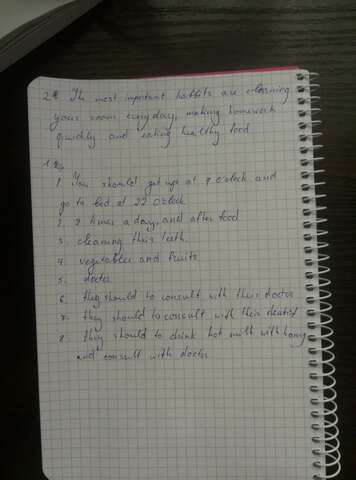 The most important habbits are cleaning
your room everyday, making homework
quickly and eating healthy food
1. You should get up at 9 o'clock and
go to bed at 22 o'clock
2. 2 times a day, and after food
3. cleaning their teeth.
4. vegetables and fruits
5. doctor
6. they should to consult with their doctor
7. they should to consult with their dentist
8. they should to drink hot milk with honey
and consult with doctor